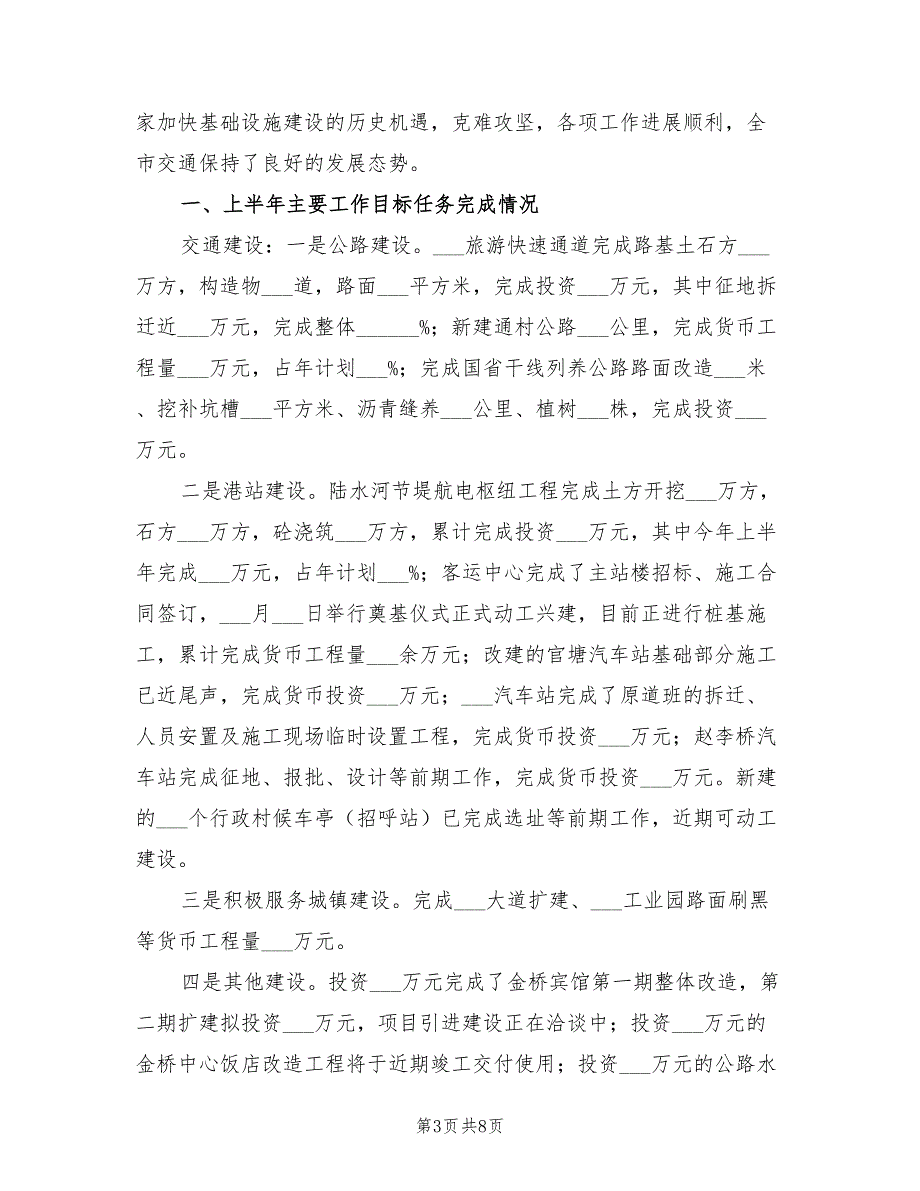 家加快基础设施建设的历史机遇，克难攻坚，各项工作进展顺利，全
市交通保持了良好的发展态势。
一、上半年主要工作目标任务完成情况
交通建设：一是公路建设。___旅游快速通道完成路基土石方___
万方，构造物___道，路面___平方米，完成投资___万元，其中征地拆
迁近___万元，完成整体______%；新建通村公路___公里，完成货币工
程量___万元，占年计划___%；完成国省干线列养公路路面改造___米
、挖补坑槽___平方米、沥青缝养___公里、植树___株，完成投资___
万元。
二是港站建设。陆水河节堤航电枢纽工程完成土方开挖___万方，
石方___万方，砼浇筑___万方，累计完成投资___万元，其中今年上半
年完成___万元，占年计划___%；客运中心完成了主站楼招标、施工合
同签订，___月___日举行奠基仪式正式动工兴建，目前正进行桩基施
工，累计完成货币工程量___余万元；改建的官塘汽车站基础部分施工
已近尾声，完成货币投资___万元；___汽车站完成了原道班的拆迁、
人员安置及施工现场临时设置工程，完成货币投资___万元；赵李桥汽
车站完成征地、报批、设计等前期工作，完成货币投资___万元。新建
的___个行政村候车亭（招呼站）已完成选址等前期工作，近期可动工
建设。
三是积极服务城镇建设。完成___大道扩建、___工业园路面刷黑
等货币工程量___万元。
四是其他建设。投资___万元完成了金桥宾馆第一期整体改造，第
二期扩建拟投资___万元，项目引进建设正在洽谈中；投资___万元的
金桥中心饭店改造工程将于近期竣工交付使用；投资___万元的公路水
第3页 共8页